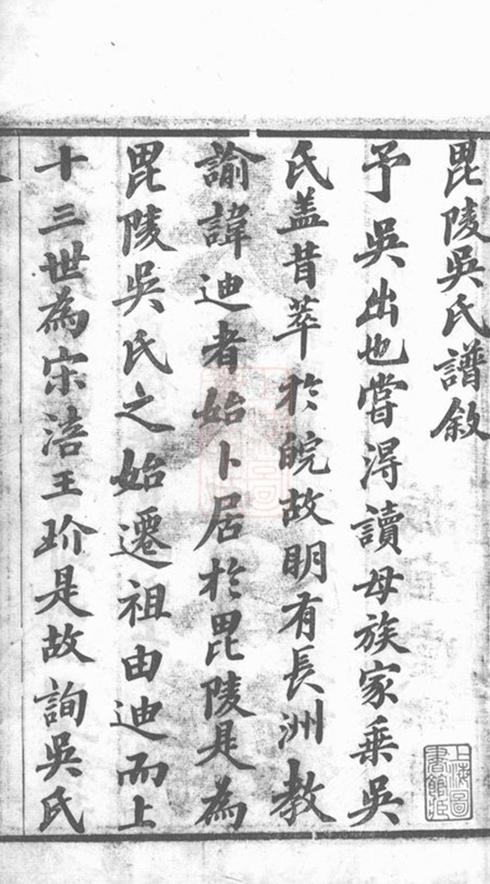 毘陵吳氏譜敘
予吳出也嘗得讀母族家乘吳
氏盖昔萃於皖故明有長洲教
諭諱迪者始卜居於毘陵是為
毘陵吳氏之始遷祖由迪而上
十三世為宋涪王玠是故詢吳氏
上海圖書館藏